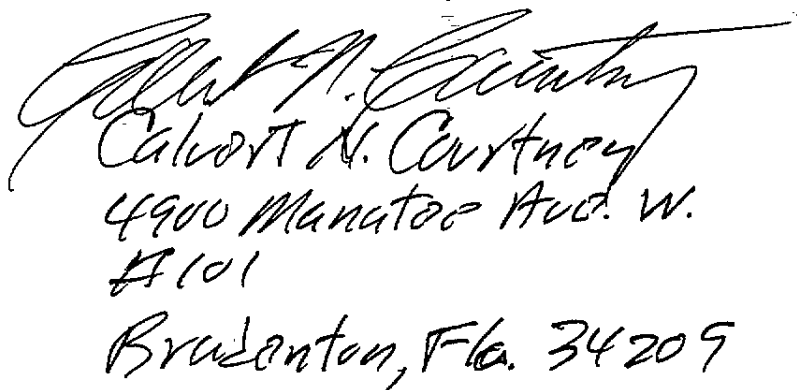 Calvert N. Courtney
Calvert N. Courtney
4900 Manatee Ave. W.
#101
Bradenton, Fla. 34209